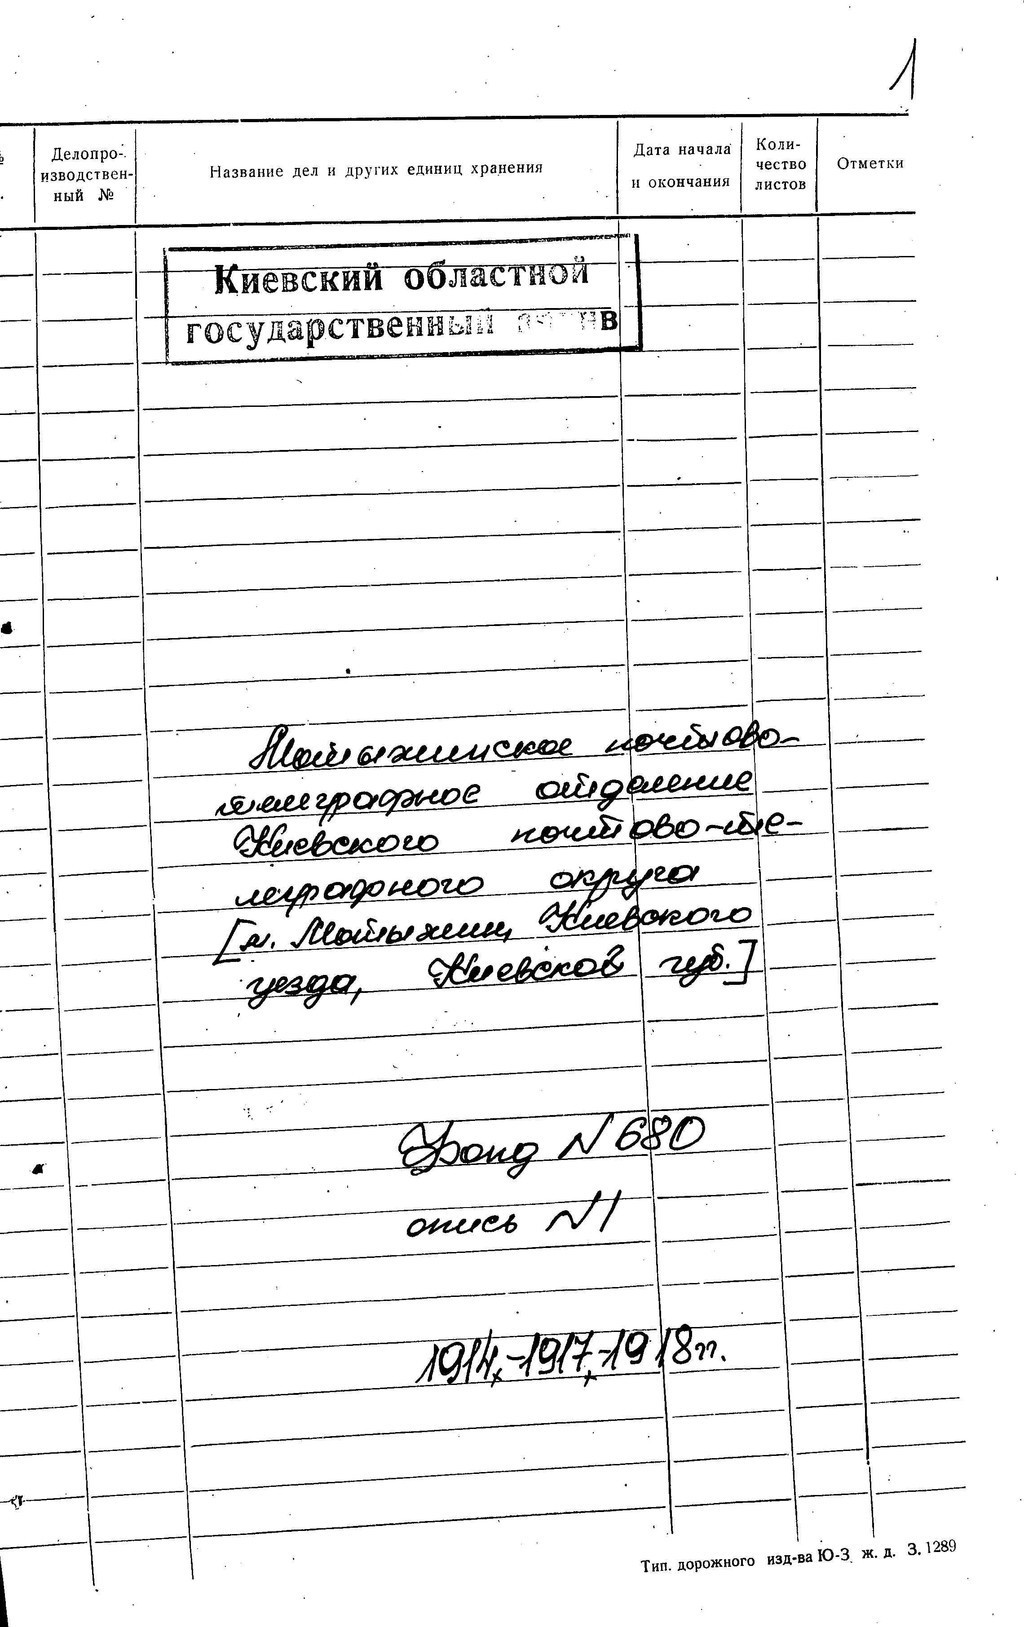 1
№
Делопро-
изводствен-
ный №
Название дел и других единиц хранения
Дата начала
и окончания
Коли-
чество
листов
Отметки
Киевский областной
государственный архив
Мотыжинское почтово-
телеграфное отделение
Киевского почтово-те-
леграфного округа
[м. Мотыжин, Киевского
уезда, Киевской губ.]
Фонд N 680
опись N 1
1914,-1917,-1918 гг.
Тип. дорожного изд-ва Ю-З. ж. д. З. 1289